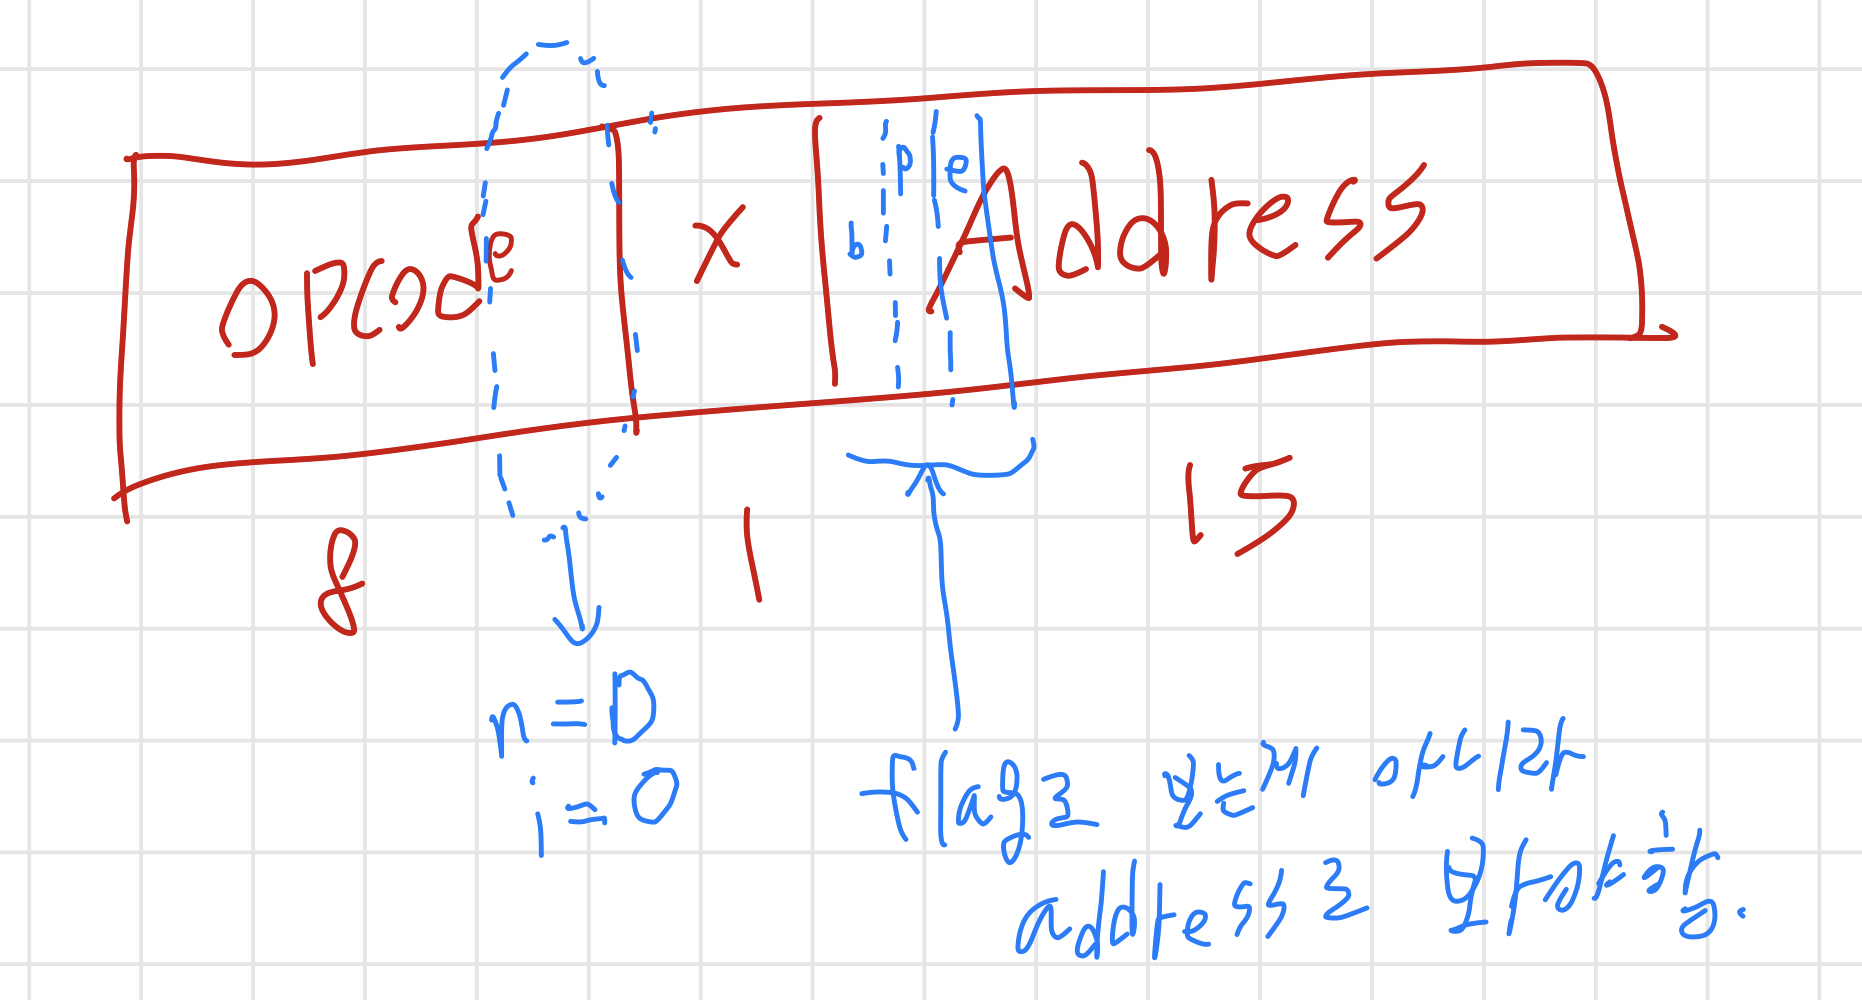 OPCode x b p e Address
8 1 15
n=0
i=0
flag로 보는게 아니라
address로